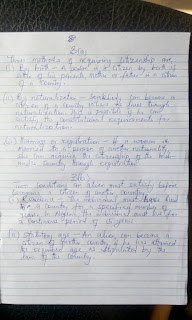 2(a)
Three methods of acquiring citizenship are
(i) By birth - A person is a citizen by birth if
either of his parents, mother or father is a citizen
of a country.
(ii) By naturalization - Somebody can become a
citizen of a country where he lives through
naturalization. This is possible if he can
satisfy the constitutional requirements for
naturalization.
(iii) Marriage or registration - If a woman is
married to a person of another nationality,
she can acquire the citizenship of the
country through registration
Two conditions an alien must satisfy before
becoming a citizen of another country
(i) Residence - The individual must have lived
in a country for a specified number of
years. In Nigeria, the individual must live for
a continuous period of 15 years.
(ii) Statutory age - An alien can become a
citizen of another country if he has attained
the required age as stipulated by the
law of the country.